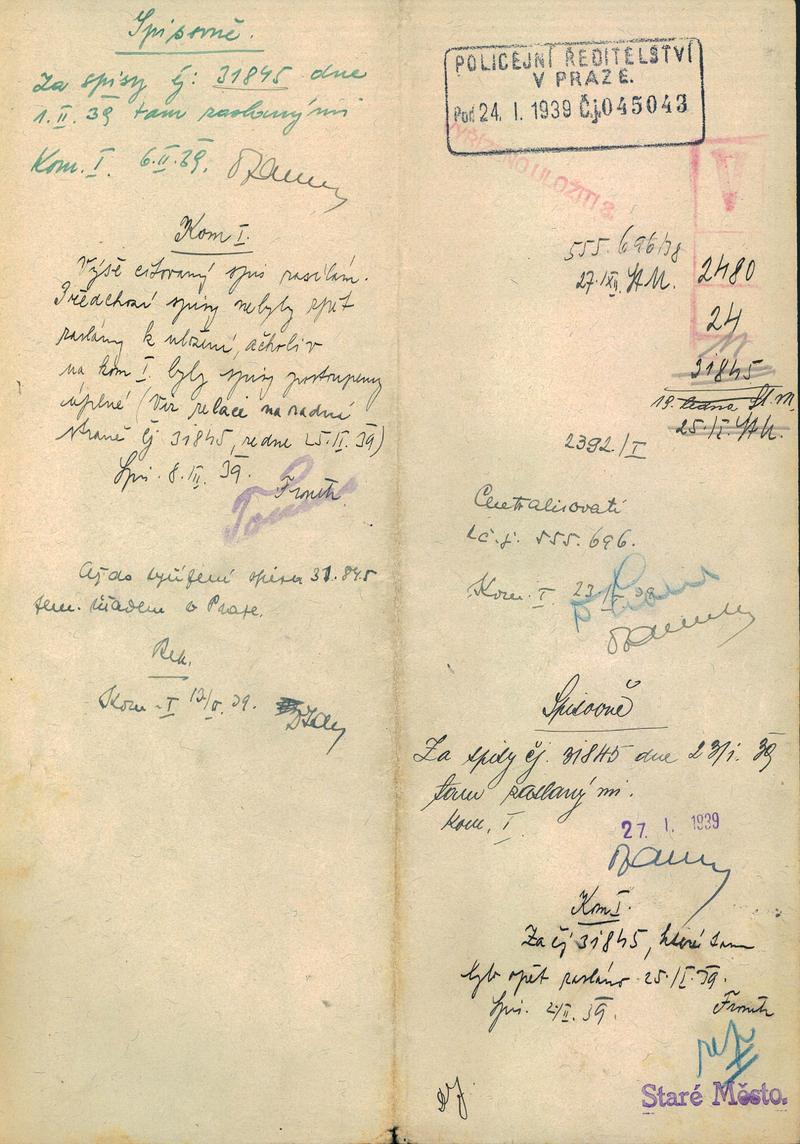 Spisovně.
Za spisy čj: 31845 dne
1.II.39 tam zaslanými
Kom. I. 6.II.39.
Kom I.
Výše citovaný spis zasílám.
Předchozí spisy nebyly zpět
zaslány k uložení, ačkoliv
na kom I. byly spisy postoupeny
úplné (Viz relace na zadní
straně čj 31845, ze dne 25.II.39)
Spis. 8.III.39.
Až do vyřízení spisu 31.845
zem. úřadem v Praze.
Kom - I
POLICEJNÍ ŘEDITELSTVÍ
V PRAZE.
Pod 24. I. 1939 Čj. 045043
VYŘÍZENO ULOŽITI
555.696/38
27.XII.
2480
24
31845
19. ledna St. M.
25./I.
2392/I
Centralisovati
k č.j. 555.696.
Kom. I 23/I 39
Spisovně
Za spisy čj. 31845 dne 23/1. 39
tam zaslanými.
Kom. I.
27. I. 1939
Kom I.
Za čj 31845, které tam
bylo opět zasláno 25./I.39.
Spis. 2/II.39.
Staré Město.